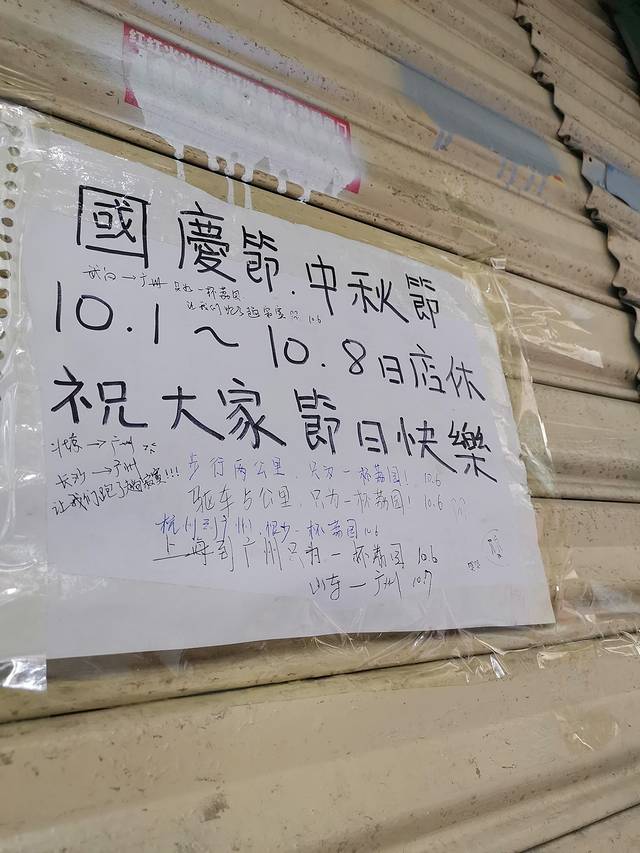 國慶節.中秋節
武汉→广州 只为一杯荔园
让我们跑了趟 10.6
10.1~10.8日店休
祝大家節日快樂
北京→广州
长沙→广州
让我们跑了趟寂寞!!!
步行两公里,只为一杯荔园! 10.6
驱车5公里,只为一杯荔园! 10.6
杭州到广州,一杯荔园 10.6
上海到广州只为一杯荔园 10.6
山东—广州 10.7